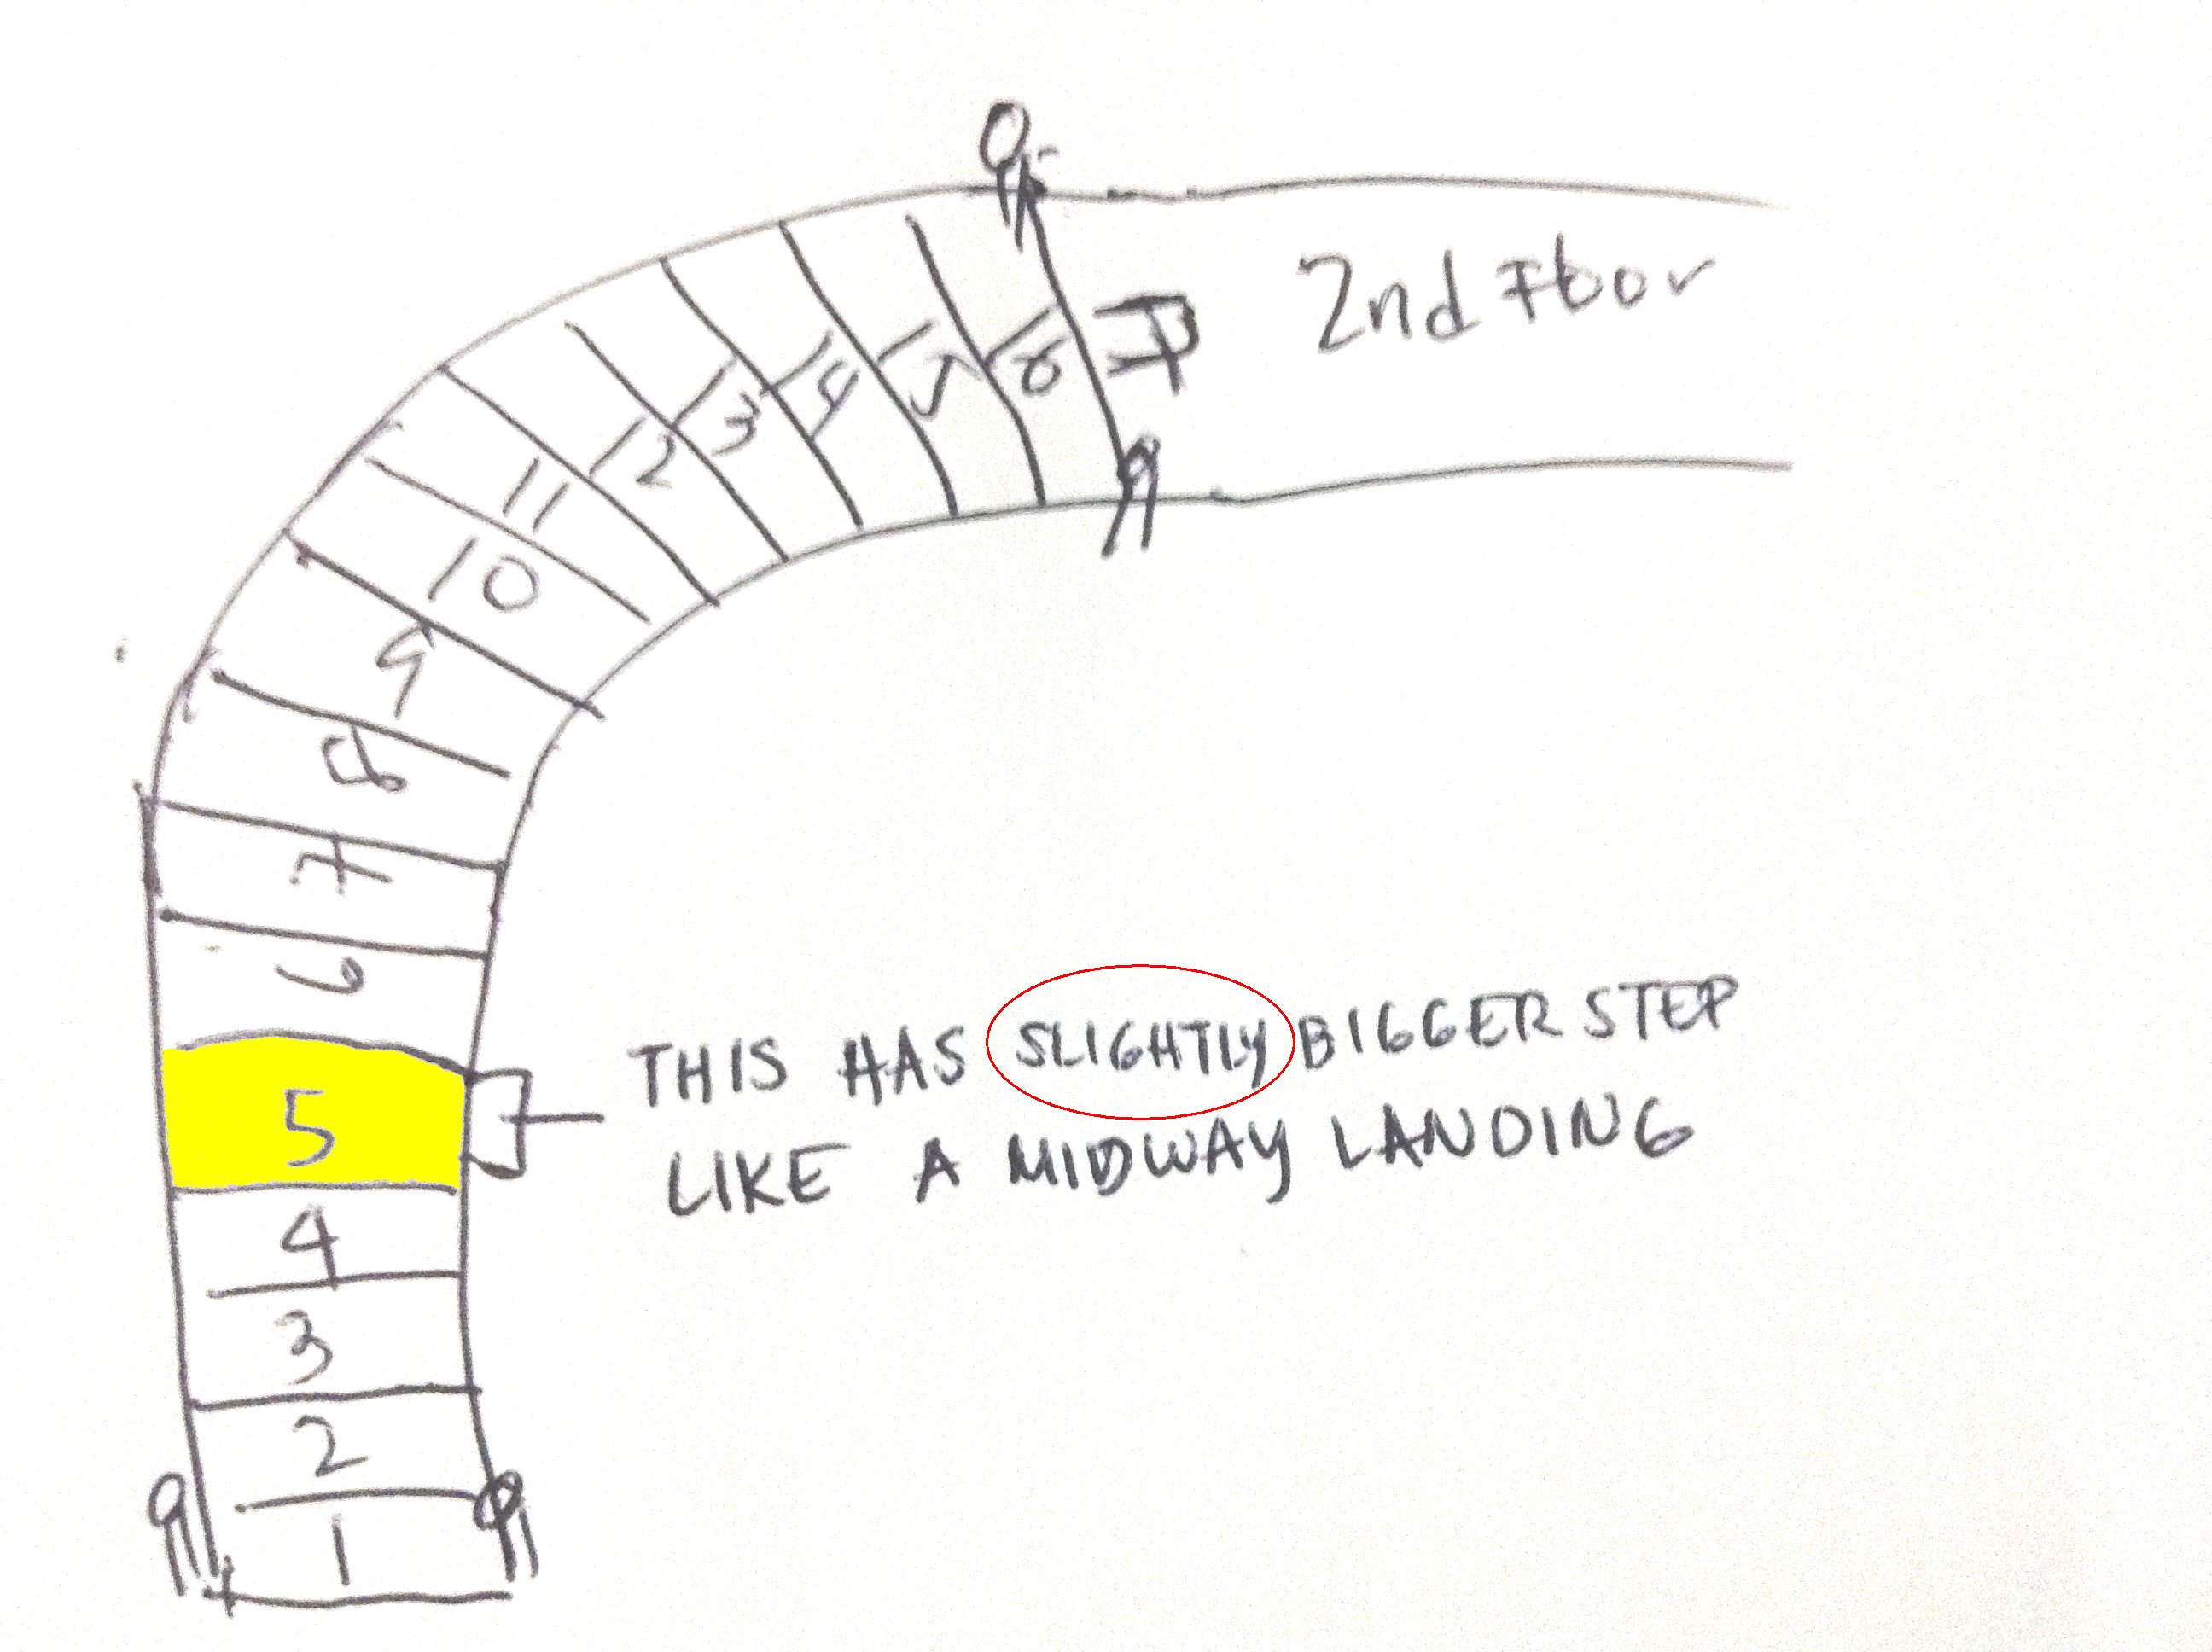 2nd Floor
16
15
14
13
12
11
10
9
8
7
6
5
THIS HAS SLIGHTLY BIGGER STEP
LIKE A MIDWAY LANDING
4
3
2
1